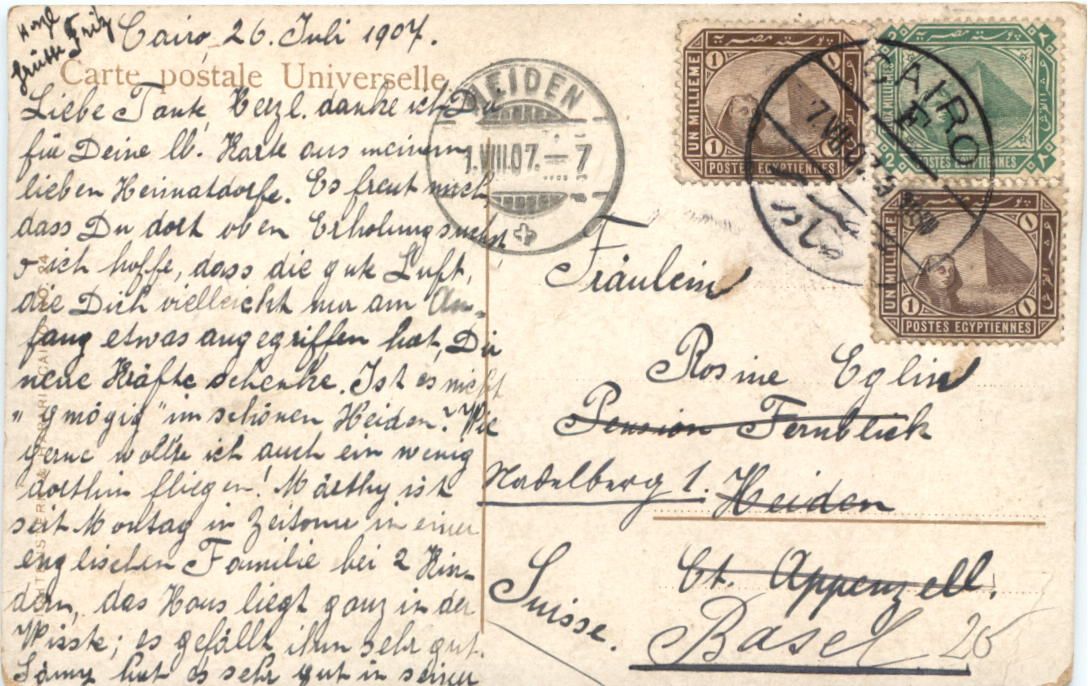 Herzl.
Grüsse Fritz
Cairo, 26. Juli 1907.
Carte postale Universelle
Liebe Tante, Herzl. danke ich Du
für Deine lb. Karte aus meinem
lieben Heimatdorfe. Es freut mich
dass Du dort oben Erholung suchst
& ich hoffe, dass die gute Luft,
die Dich vielleicht nur am An-
fang etwas angegriffen hat, Dir
neue Kräfte schenke. Ist es nicht
"gmögig" im schönen Heiden? Wie
gerne wollte ich auch ein wenig
dorthin fliegen! Märthy ist
seit Montag in Zeitoune in einer
englischen Familie bei 2 Kin-
dern, das Haus liegt ganz in der
Wüste; es gefällt ihm sehr gut.
hat es sehr gut in seiner
HEIDEN
1.VIII.07.-7
بوسته مصريه
UN MILLIEME
1 1
POSTES EGYPTIENNES
بوسته مصريه
2
POSTES EGYPTIENNES
CAIRO
E
بوسته مصريه
UN MILLIEME
1 1
POSTES EGYPTIENNES
Fräulein
Rosine Eglin
Pension Fernblick
Nadelberg 1. Heiden
Ct. Appenzell.
Suisse.
Basel